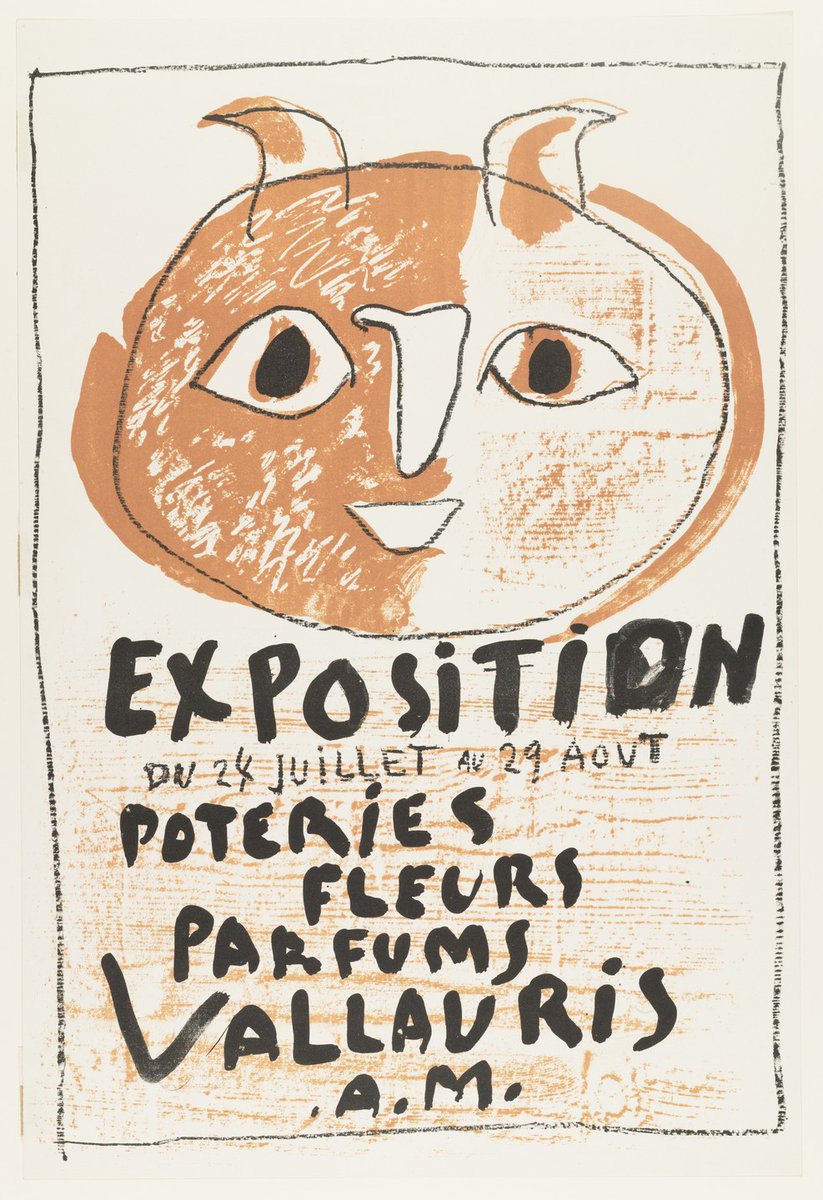 EXPOSiTiON
DU 24 JUiLLET AU 29 AOUT
POTERiES
FLEURS
PARFUMS
VALLAURiS
.A.M.